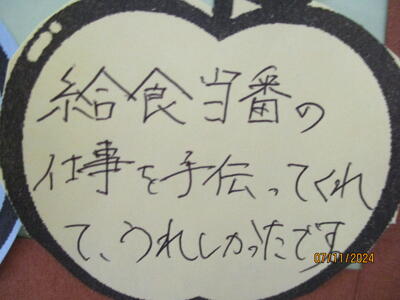 給食当番の
仕事を手伝ってくれ
て、うれしかったです
07/11/2024